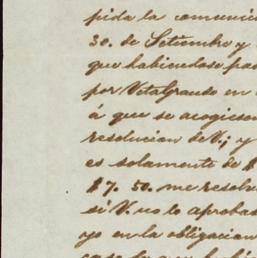 pida la comunic
30. de Setiembre y
que habiendose pa
por Vetagrande en
á que se acogiesen
resolucion de V.; y
es solamente de $
$7. 50. me resolv
si V. no lo aprobas
yo en la obligacion